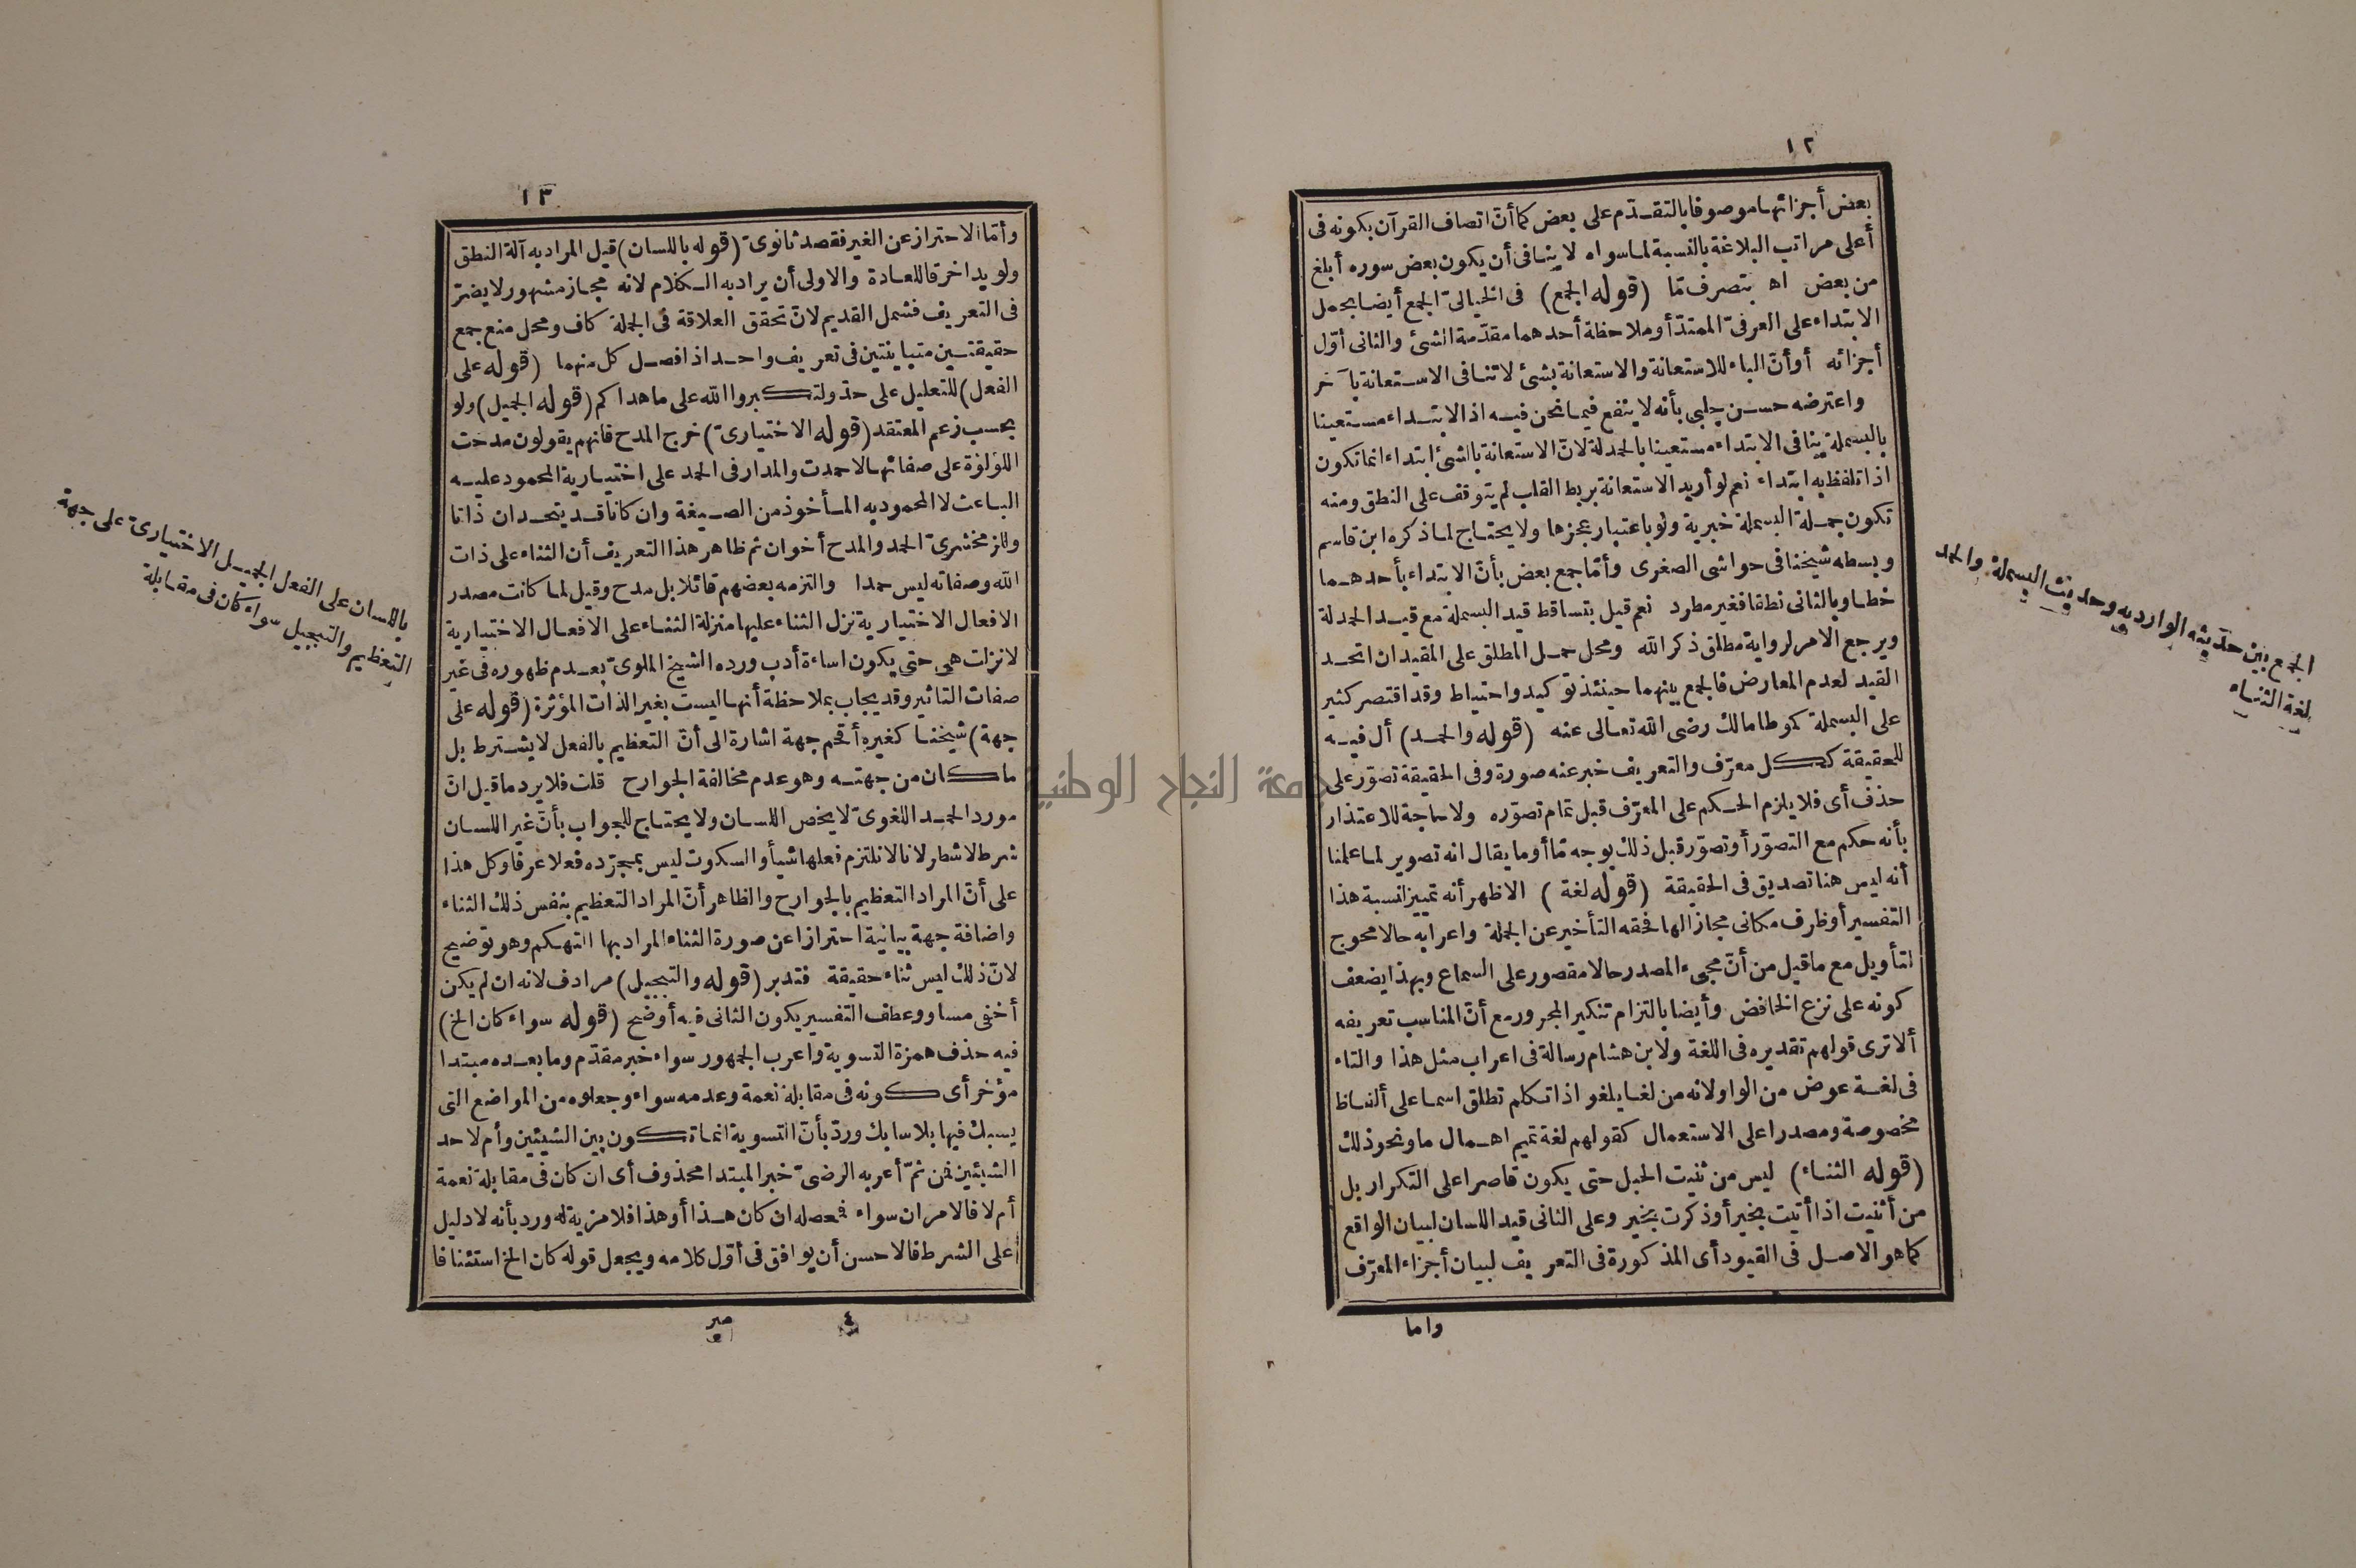 ١٢
بعض أجزائها موصوفا بالتقدّم على بعض كما أنّ اتصاف القرآن بكونه فى
أعلى مراتب البلاغة بالنسبة لما سواه لا ينافى أن يكون بعض سوره أبلغ
من بعض اه بتصرف مّا (قوله الجمع) فى الخيالىّ الجمع أيضا بحمل
الابتداء على العرفىّ الممتدّ أو ملاحظة أحدهما مقدّمة الشئ والثانى أوّل
أجزائه أو أنّ الباء للاستعانة والاستعانة بشئ لا تنافى الاستعانة بآخر
واعترضه حسن چلبى بأنه لا ينفع فيما نحن فيه اذ الابتداء مستعينا
بالبسملة ينافى الابتداء مستعينا بالحمدلة لانّ الاستعانة بالشئ ابتداء انما تكون
اذا تلفظ به ابتداء نعم لو أريد الاستعانة بربط القلب لم يتوقف على النطق ومنه
تكون جملة البسملة خبرية ولو باعتبار عجزها ولا يحتاج لما ذكره ابن قاسم
وبسطه شيخنا فى حواشى الصغرى وأمّا جمع بعض بأنّ الابتداء بأحدهما
خطا وبالثانى نطقا فغير مطرد نعم قيل بتساقط قيد البسملة مع قيد الحمدلة
ويرجع الامر لرواية مطلق ذكر الله ومحل حمل المطلق على المقيد ان اتحد
القيد لعدم المعارض فالجمع بينهما حينئذ توكيد واحتياط وقد اقتصر كثير
على البسملة كموطا مالك رضى الله تعالى عنه (قوله والحمد) أل فيه
للحقيقة ككل معرّف والتعريف خبر عنه صورة وفى الحقيقة تصوّر على
حذف أى فلا يلزم الحكم على المعرّف قبل تمام تصوّره ولا حاجة للاعتذار
بأنه حكم مع التصوّر أو تصوّر قبل ذلك بوجه مّا أو ما يقال انه تصوير لما علمنا
أنه ليس هنا تصديق فى الحقيقة (قوله لغة) الاظهر أنه تمييز لنسبة هذا
التفسير أو ظرف مكانى مجازا لها فحقه التأخير عن الجملة واعرابه حالا محوج
لتأويل مع ما قيل من أنّ مجىء المصدر حالا مقصور على السماع وبهذا يضعف
كونه على نزع الخافض وأيضا بالتزام تنكير المجرور مع أنّ المناسب تعريفه
ألا ترى قولهم تقديره فى اللغة ولابن هشام رسالة فى اعراب مثل هذا والتاء
فى لغة عوض من الواو لانه من لغا يلغو اذا تكلم تطلق اسما على ألفاظ
مخصوصة ومصدرا على الاستعمال كقولهم لغة تميم اهمال ما ونحو ذلك
(قوله الثناء) ليس من ثنيت الحبل حتى يكون قاصرا على التكرار بل
من أثنيت اذا أتيت بخير أو ذكرت بخير وعلى الثانى قيد اللسان لبيان الواقع
كما هو الاصل فى القيود أى المذكورة فى التعريف لبيان أجزاء المعرّف
واما
الجمع بين حديثه الوارد به وحديث البسملة والحمد
لغة الثناء
١٣
وأمّا الاحتراز عن الغير فقصد ثانوىّ (قوله باللسان) قيل المراد به آلة النطق
ولو يدا خرقا للعادة والاولى أن يراد به الكلام لانه مجاز مشهور لا يضرّ
فى التعريف فشمل القديم لانّ تحقق العلاقة فى الجملة كاف ومحل منع جمع
حقيقتين متباينتين فى تعريف واحد اذا فصل كل منهما (قوله على
الفعل) للتعليل على حدّ ولتكبروا الله على ما هداكم (قوله الجميل) ولو
بحسب زعم المعتقد (قوله الاختيارىّ) خرج المدح فانهم يقولون مدحت
اللؤلؤة على صفائها لا حمدت والمدار فى الحمد على اختيارية المحمود عليه
الباعث لا المحمود به المأخوذ من الصيغة وان كانا قد يتحدان ذاتا
والزمخشرىّ الحمد والمدح أخوان ثم ظاهر هذا التعريف أن الثناء على ذات
الله وصفاته ليس حمدا والتزمه بعضهم قائلا بل مدح وقيل لما كانت مصدر
الافعال الاختيارية نزل الثناء عليها منزلة الثناء على الافعال الاختيارية
لا نزلت هى حتى يكون اساءة أدب ورده الشيخ الملوىّ بعدم ظهوره فى غير
صفات التاثير وقد يجاب بملاحظة أنها ليست بغير الذات المؤثرة (قوله على
جهة) شيخنا كغيره أقحم جهة اشارة الى أنّ التعظيم بالفعل لا يشترط بل
ما كان من جهته وهو عدم مخالفة الجوارح قلت فلا يرد ما قيل انّ
مورد الحمد اللغوىّ لا يخص اللسان ولا يحتاج للجواب بأنّ غير اللسان
شرط لا شطر لانا لا نلتزم فعلها شيأ والسكوت ليس بمجرّده فعلا عرفا وكل هذا
على أنّ المراد التعظيم بالجوارح والظاهر أنّ المراد التعظيم بنفس ذلك الثناء
واضافة جهة بيانية احترازا عن صورة الثناء المراد بها التهكم وهو توضيح
لانّ ذلك ليس ثناء حقيقة فتدبر (قوله والتبجيل) مرادف لانه ان لم يكن
أخفى مساو وعطف التفسير يكون الثانى فيه أوضح (قوله سواء كان الخ)
فيه حذف همزة التسوية واعرب الجمهور سواء خبر مقدّم وما بعده مبتدا
مؤخر أى كونه فى مقابلة نعمة وعدمه سواء وجعلوه من المواضع التى
يسبك فيها بلا سابك وردّ بأنّ التسوية انما تكون بين الشيئين وأم لاحد
الشيئين فمن ثمّ أعربه الرضىّ خبر المبتدا محذوف أى ان كان فى مقابلة نعمة
أم لا فالامران سواء فحصله ان كان هذا أو هذا فلا مزية له ورد بأنه لا دليل
على الشرط فالاحسن أن يوافق فى أوّل كلامه ويجعل قوله كان الخ استئنافا
٤
مير
باللسان على الفعل الجميل الاختيارىّ على جهة
التعظيم والتبجيل سواء كان فى مقابلة
جامعة النجاح الوطنية